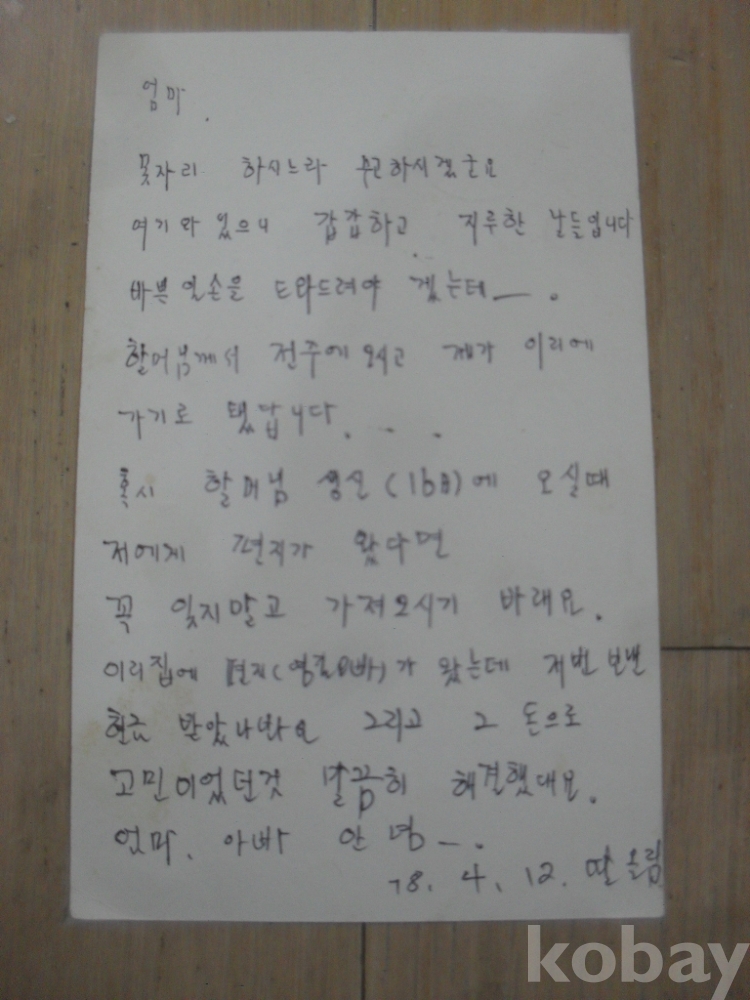 엄마.
못자리 하시느라 수고하시겠군요
여기 와 있으니 갑갑하고 지루한 날들입니다
바쁜 일손을 도와드려야 겠는데—.
할머님께서 전주에 오시고 제가 이리에
가기로 됐답니다. . .
혹시 할머님 생신(16日)에 오실때
저에게 편지가 왔다면
꼭 잊지말고 가져오시기 바래요.
이리집에 편지(영길오빠)가 왔는데 저번 보낸
현금 받았나봐요 그리고 그 돈으로
고민이었던것 말끔히 해결했대요.
엄마, 아빠 안녕—.
78. 4. 12. 딸 올림
kobay